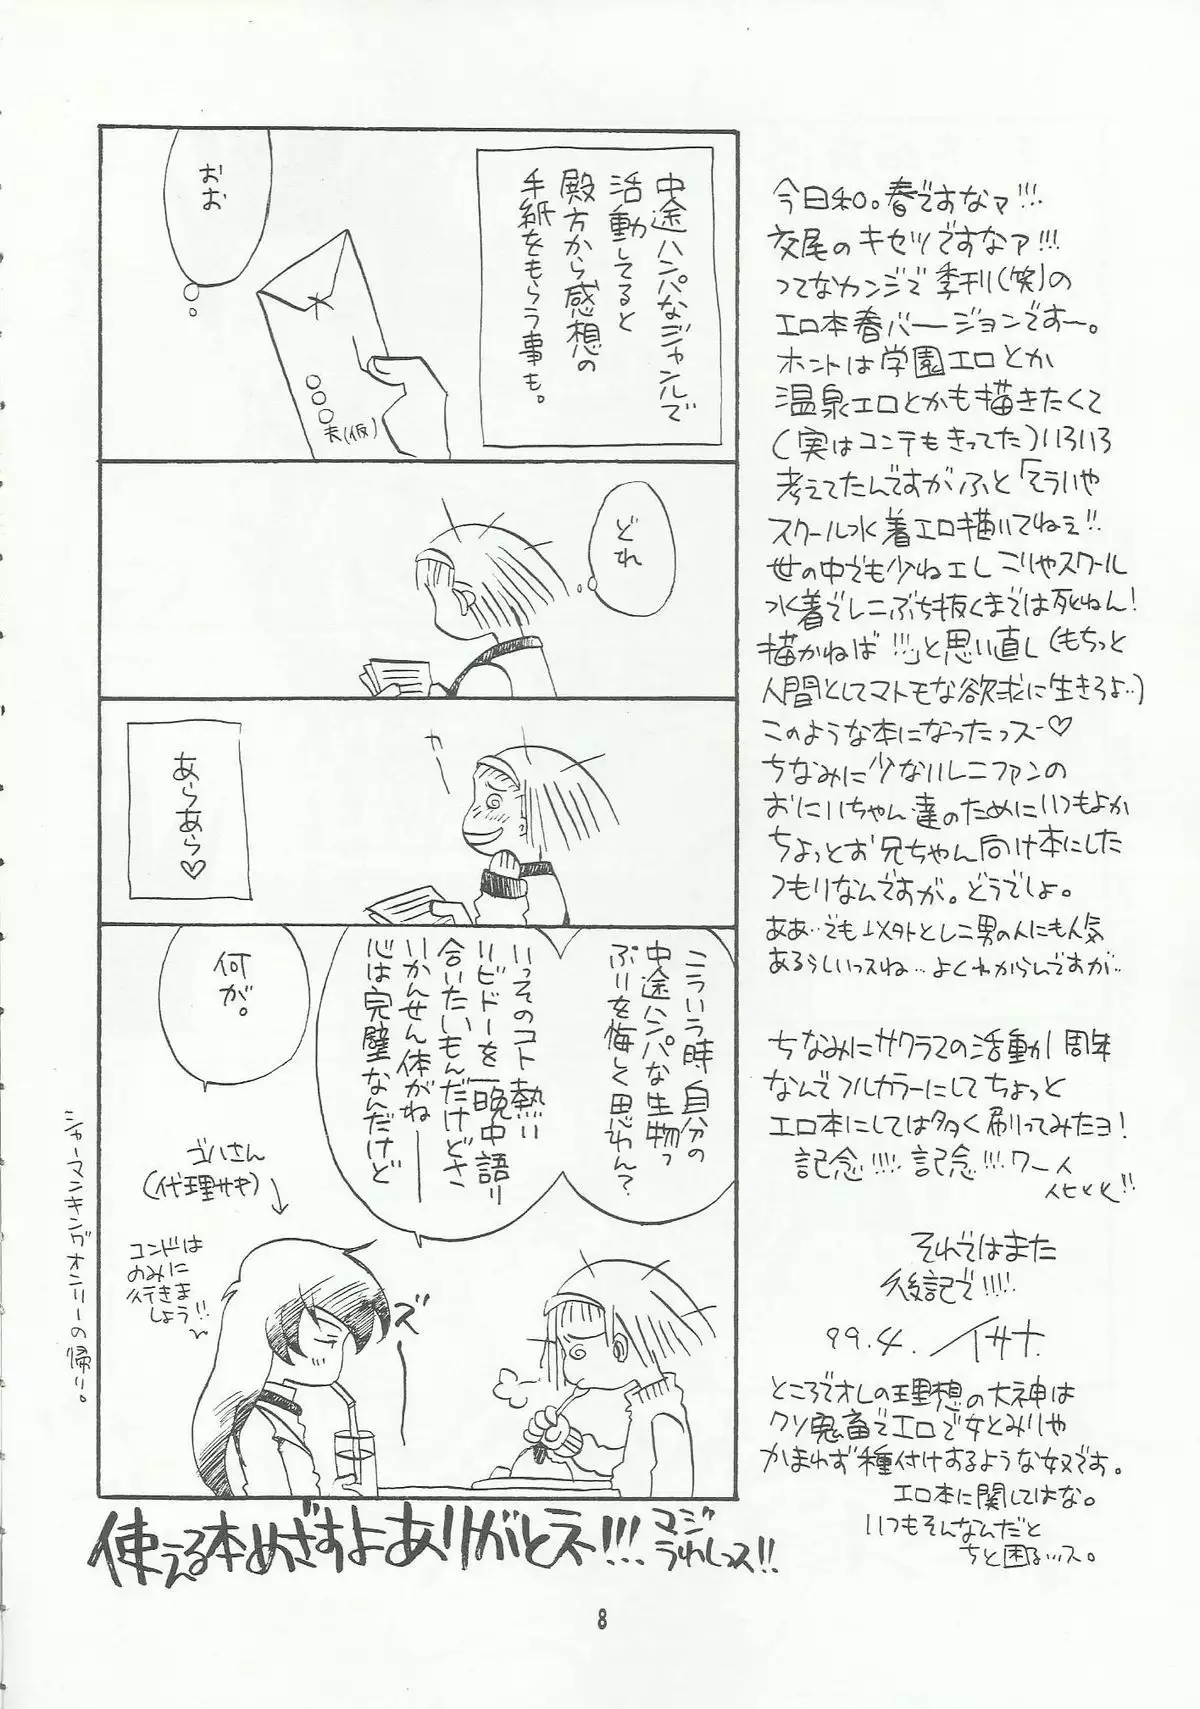 今日和。春ですなァ!!!
交尾のキセツですなァ!!!
ってなカンジで季刊(笑)の
エロ本春バージョンですー。
ホントは学園エロとか
温泉エロとかも描きたくて
(実はコンテもきってた)いろいろ
考えてたんですがふと「そういや
スクール水着エロ描いてねぇ!!
世の中でも少ねエしこりゃスクール
水着でレニぶち抜くまでは死ねん!
描かねば!!!」と思い直し(もちっと
人間としてマトモな欲求に生きろよ‥)
このような本になったっスー♡
ちなみに少ないレニファンの
おにいちゃん達のためにいつもよか
ちょっとお兄ちゃん向け本にした
つもりなんですが。どうでしょ。
ああ…でも以外とレニ男の人にも人気
あるらしいっスね…よくわからんですが‥
ちなみにサクラでの活動1周年
なんでフルカラーにしてちょっと
エロ本にしては多く刷ってみたヨ!
記念!!!! 記念!!! ワー
それではまた
後記で!!!!!
99.4. イサナ
ところでオレの理想の大神は
クソ鬼畜でエロで女とみりゃ
かまわず種付けするような奴です。
エロ本に関してはな。
いつもそんなんだと
ちと困るッス。
中途ハンパなジャンルで
活動してると
殿方から感想の
手紙をもらう事も。
おお
○○○夫(仮)
どれ
カー
あらあら♡
こういう時自分の
中途ハンパな生物っ
ぷりを悔しく思わん?
いっそのコト熱い
リビドーを一晩中語り
合いたいもんだけどさ
いかんせん体がねー
心は完璧なんだけど
何が。
ゴハさん
(代理サキ)
コンドは
のみに
行きま
しょう!!
ズー
シャーマンキングオンリーの帰り。
使える本めざすよありがとネ!!!
マジ
うれしっス!!
8